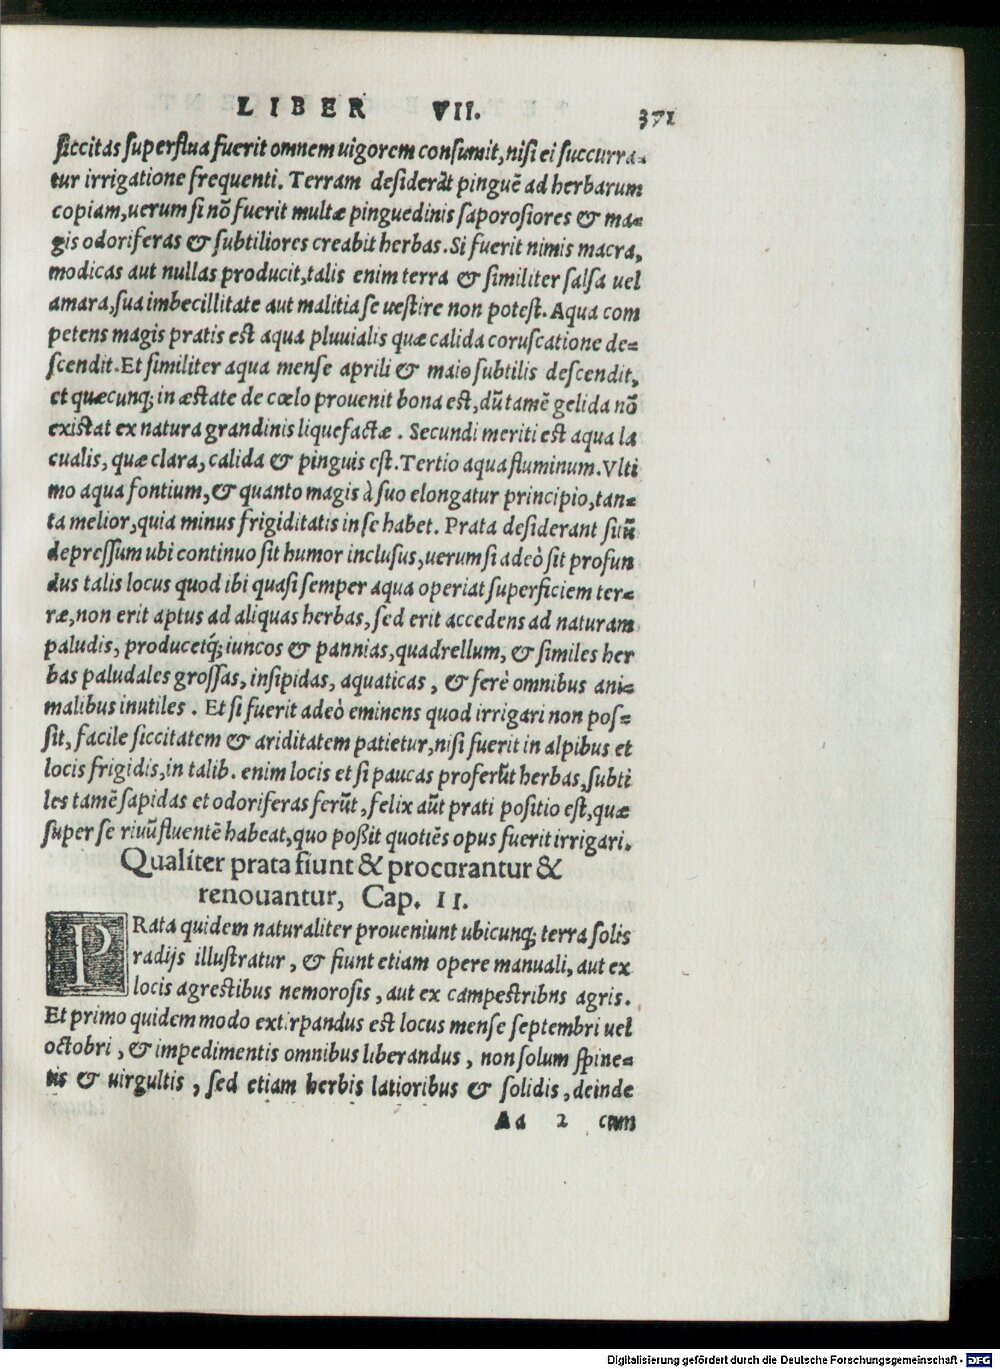 LIBER VII. 371
siccitas superflua fuerit omnem uigorem consumit, nisi ei succurra-
tur irrigatione frequenti. Terram desiderãt pinguẽ ad herbarum
copiam, uerum si nõ fuerit multæ pinguedinis saporosiores & ma-
gis odoriferas & subtiliores creabit herbas. Si fuerit nimis macra,
modicas aut nullas producit, talis enim terra & similiter salsa uel
amara, sua imbecillitate aut malitia se uestire non potest. Aqua com
petens magis pratis est aqua pluuialis quæ calida coruscatione de-
scendit. Et similiter aqua mense aprili & maio subtilis descendit,
et quæcunq; in æstate de cœlo prouenit bona est, dũ tamẽ gelida nõ
existat ex natura grandinis liquefactæ. Secundi meriti est aqua la
cualis, quæ clara, calida & pinguis est. Tertio aqua fluminum. Vlti
mo aqua fontium, & quanto magis à suo elongatur principio, tan-
ta melior, quia minus frigiditatis in se habet. Prata desiderant sitũ
depressum ubi continuo sit humor inclusus, uerum si adeò sit profun
dus talis locus quod ibi quasi semper aqua operiat superficiem ter-
ræ, non erit aptus ad aliquas herbas, sed erit accedens ad naturam
paludis, producetq́; iuncos & pannias, quadrellum, & similes her
bas paludales grossas, insipidas, aquaticas, & ferè omnibus ani-
malibus inutiles. Et si fuerit adeò eminens quod irrigari non pos-
sit, facile siccitatem & ariditatem patietur, nisi fuerit in alpibus et
locis frigidis, in talib. enim locis et si paucas proferũt herbas, subti
les tamẽ sapidas et odoriferas ferũt, felix aũt prati positio est, quæ
super se riuũ fluentẽ habeat, quo poßit quotiẽs opus fuerit irrigari.
Qualiter prata fiunt & procurantur &
renouantur, Cap. II.
PRata quidem naturaliter proueniunt ubicunq; terra solis
radijs illustratur, & fiunt etiam opere manuali, aut ex
locis agrestibus nemorosis, aut ex campestribns agris.
Et primo quidem modo extirpandus est locus mense septembri uel
octobri, & impedimentis omnibus liberandus, non solum spine-
tis & uirgultis, sed etiam herbis latioribus & solidis, deinde
Aa 2 cum
Digitalisierung gefördert durch die Deutsche Forschungsgemeinschaft - DFG